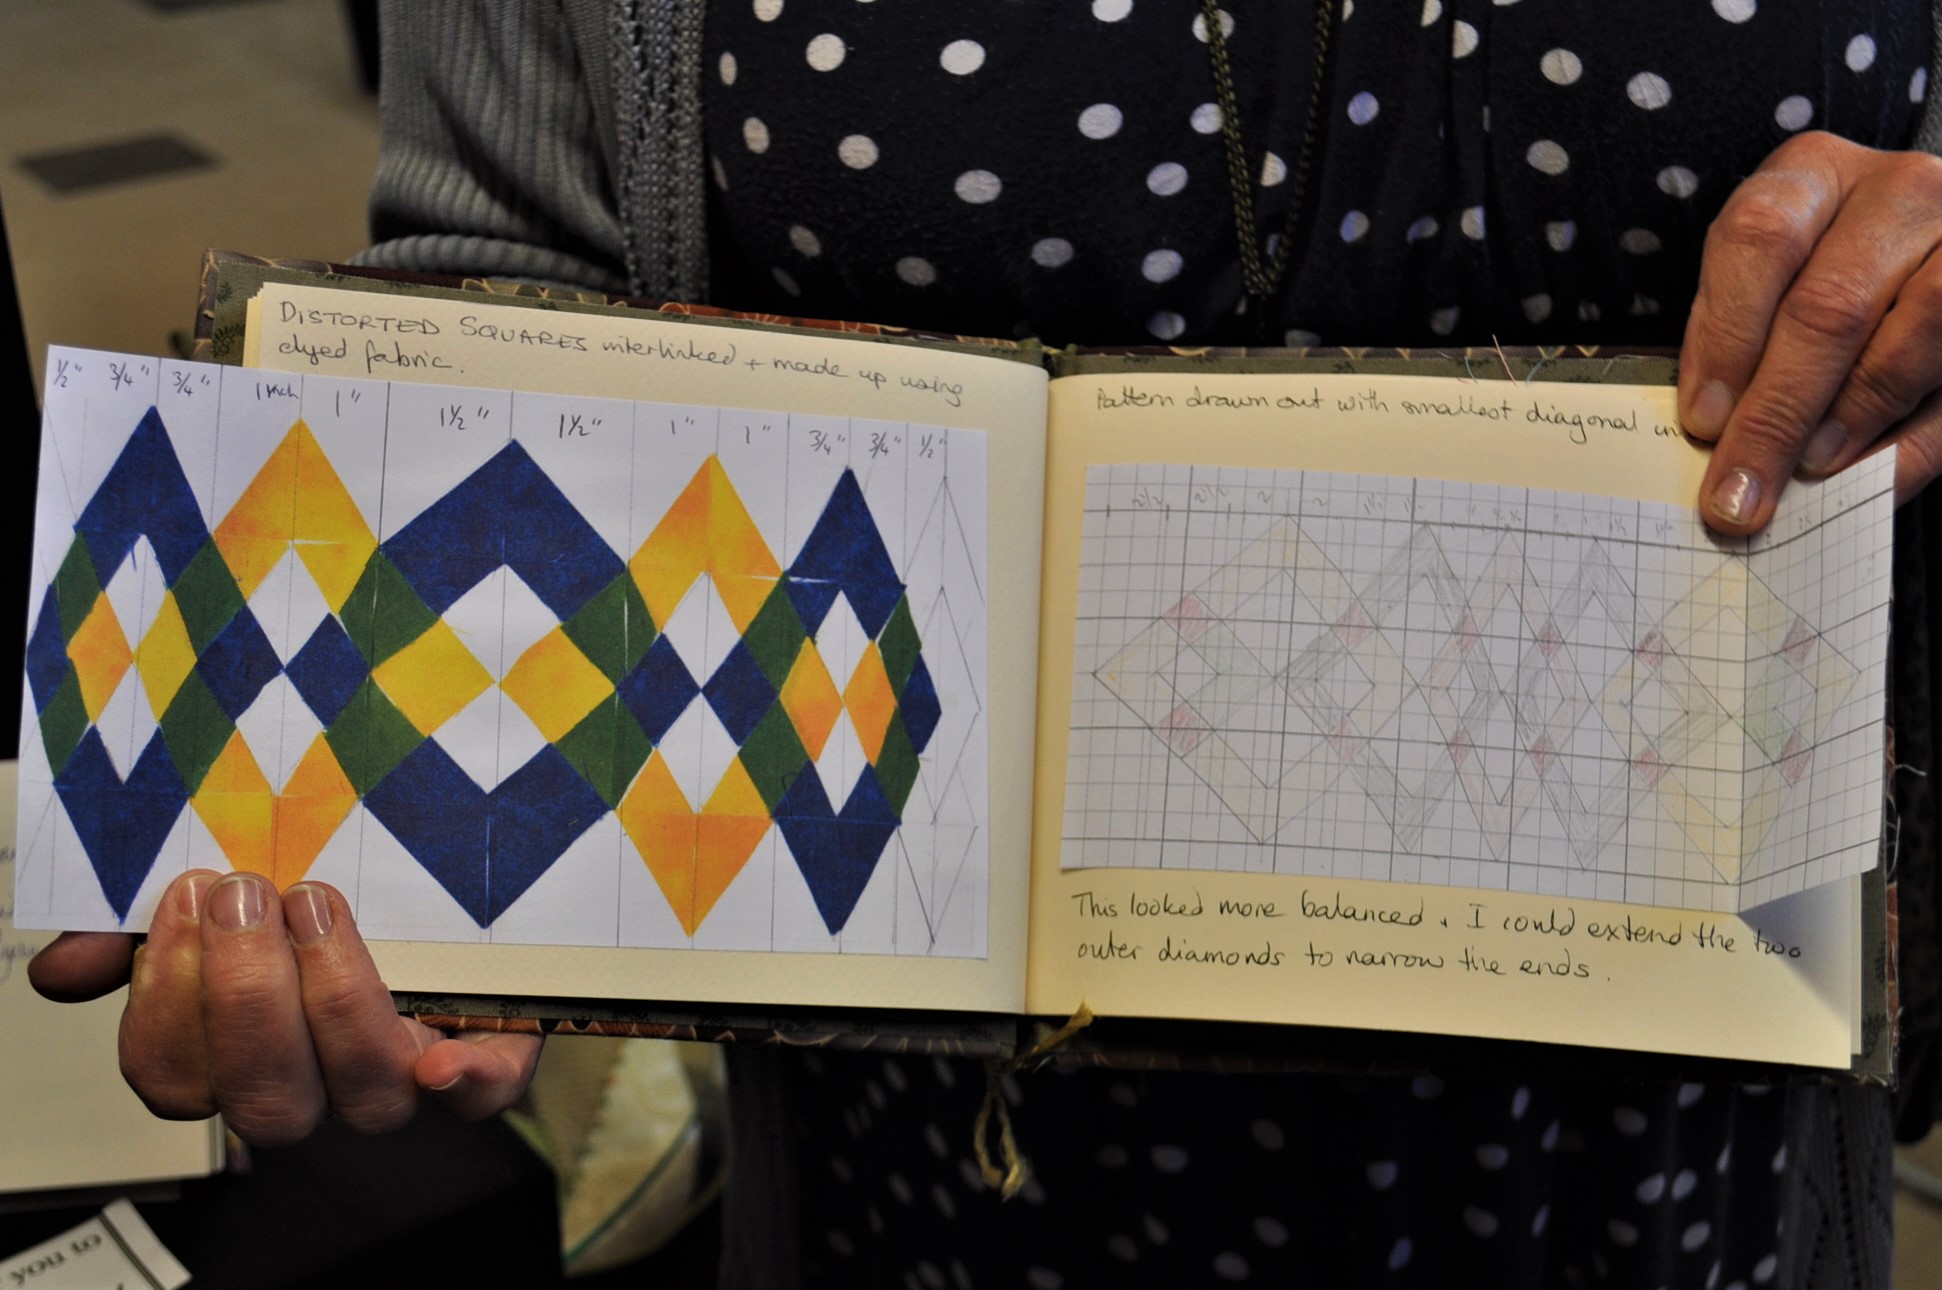 DISTORTED SQUARES interlinked + made up using
dyed fabric.
1/2" 3/4" 3/4" 1 inch 1" 1 1/2" 1 1/2" 1" 1" 3/4" 3/4" 1/2"
Pattern drawn out with smallest diagonal in
This looked more balanced. I could extend the two
outer diamonds to narrow the ends.
you to